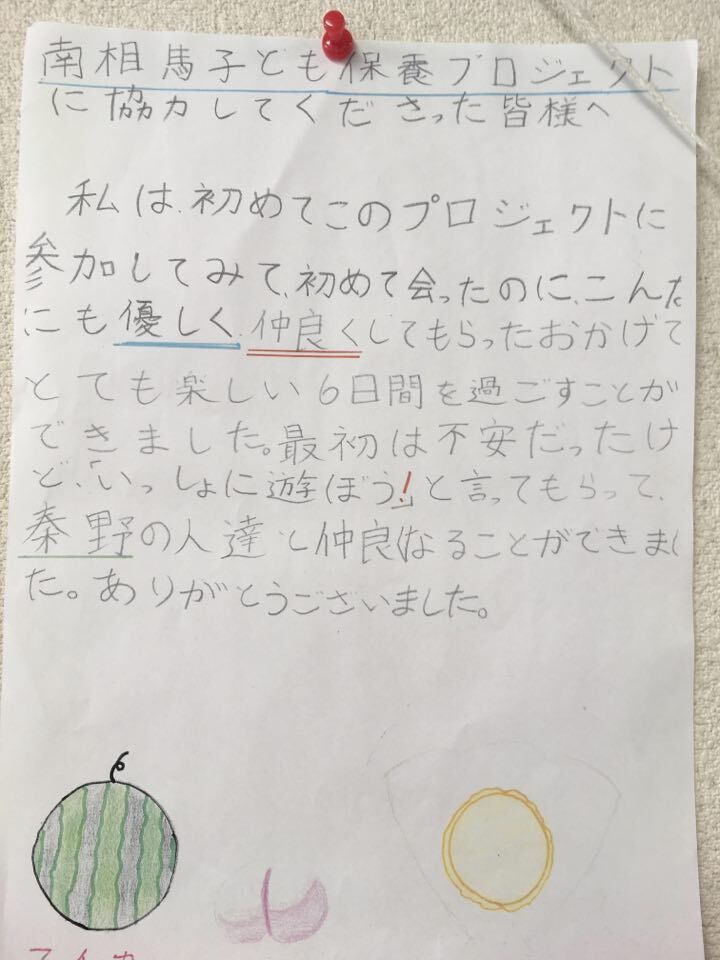 南相馬子ども保養プロジェクト
に協力してくださった皆様へ
私は、初めてこのプロジェクトに
参加してみて、初めて会ったのに、こんな
にも優しく、仲良くしてもらったおかげで
とても楽しい6日間を過ごすことが
できました。最初は不安だったけ
ど、「いっしょに遊ぼう!」と言ってもらって、
秦野の人達と仲良くなることができまし
た。ありがとうございました。